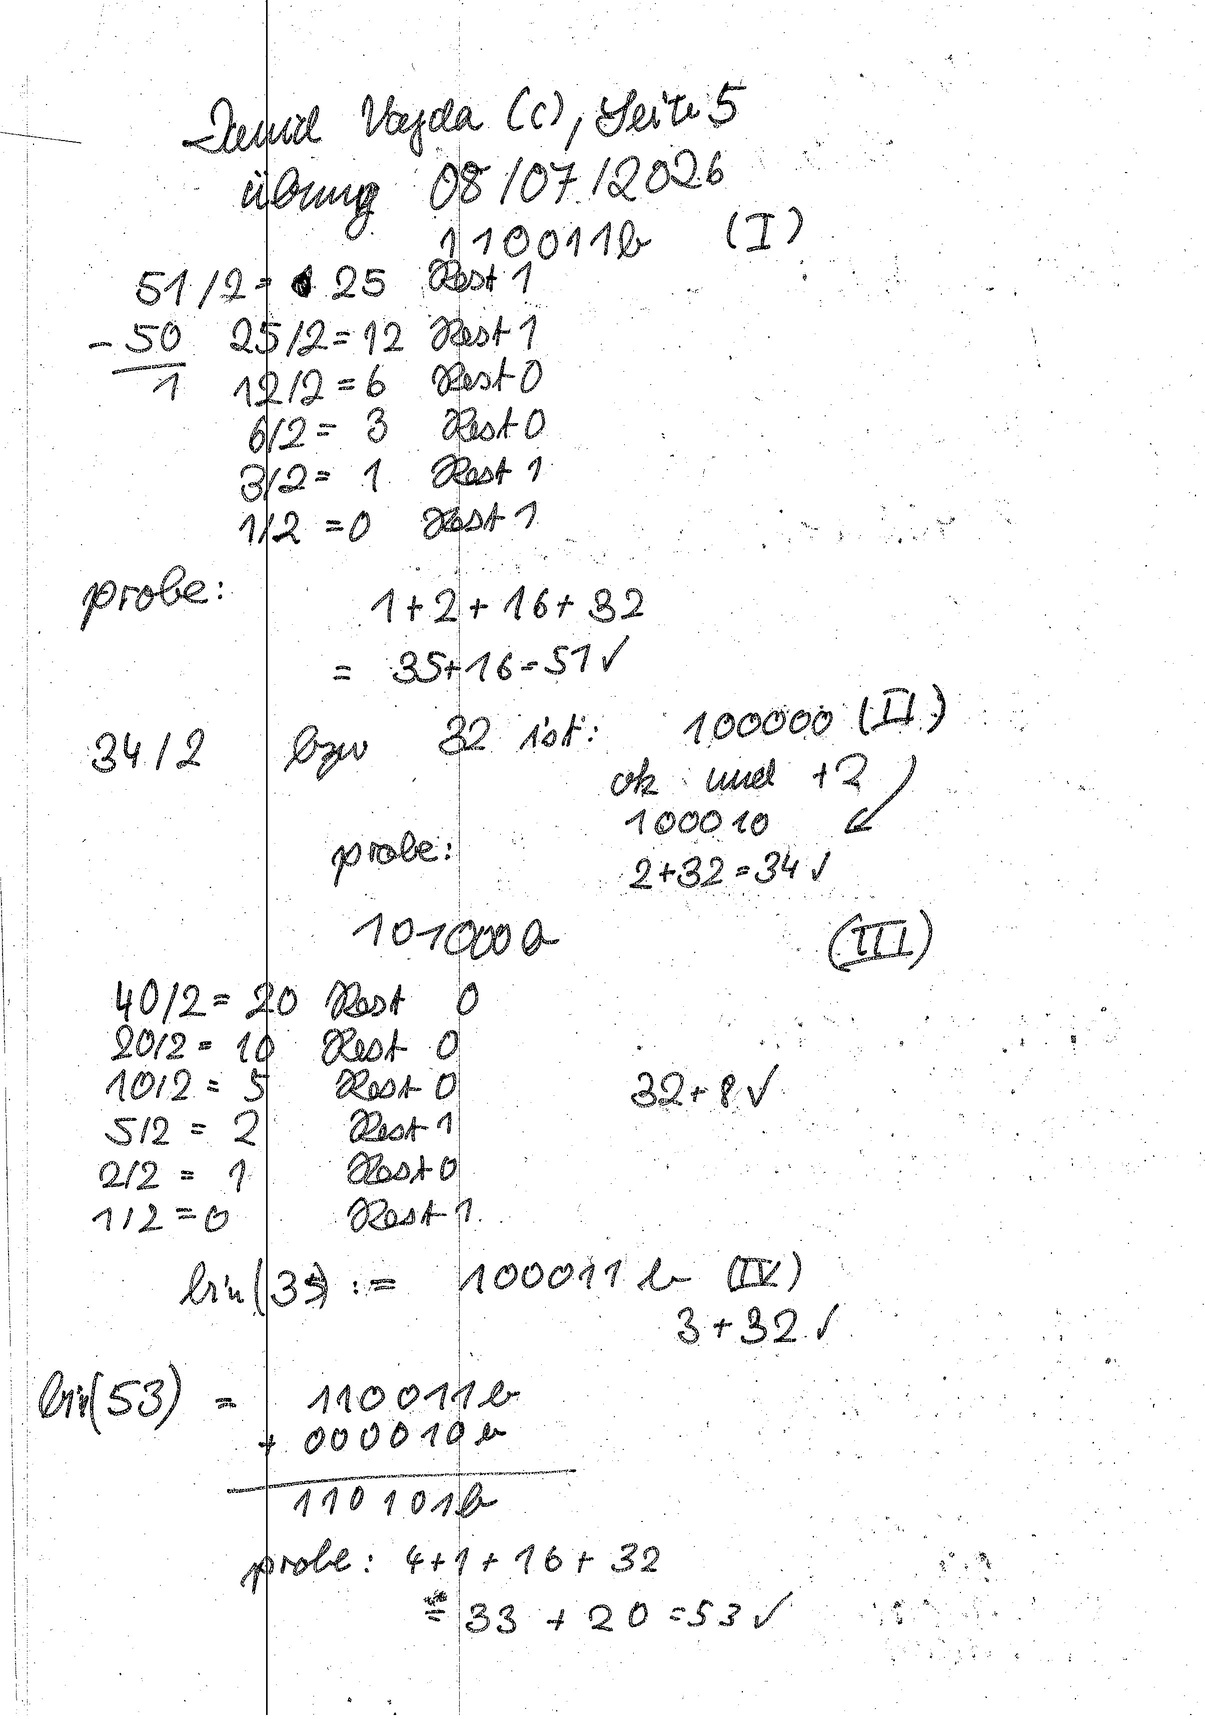 David Vajda (C), Seite 5
übung 08/07/2026
110011b (I)
51/2= 25 Rest 1
- 50 25/2=12 Rest 1
1 12/2=6 Rest 0
6/2= 3 Rest 0
3/2= 1 Rest 1
1/2 =0 Rest 1
probe: 1+2+16+32
= 35+16=51✓
34/2 bzw 32 ist: 100000 (II)
ok und +2
100010
probe: 2+32=34✓
101000b (III)
40/2= 20 Rest 0
20/2= 10 Rest 0
10/2= 5 Rest 0 32+8✓
5/2 = 2 Rest 1
2/2 = 1 Rest 0
1/2=0 Rest 1
bin(35) := 100011 b (IV)
3+32✓
bin(53) = 110011b
+ 000010b
110101b
probe: 4+1+16+32
= 33 + 20 =53✓